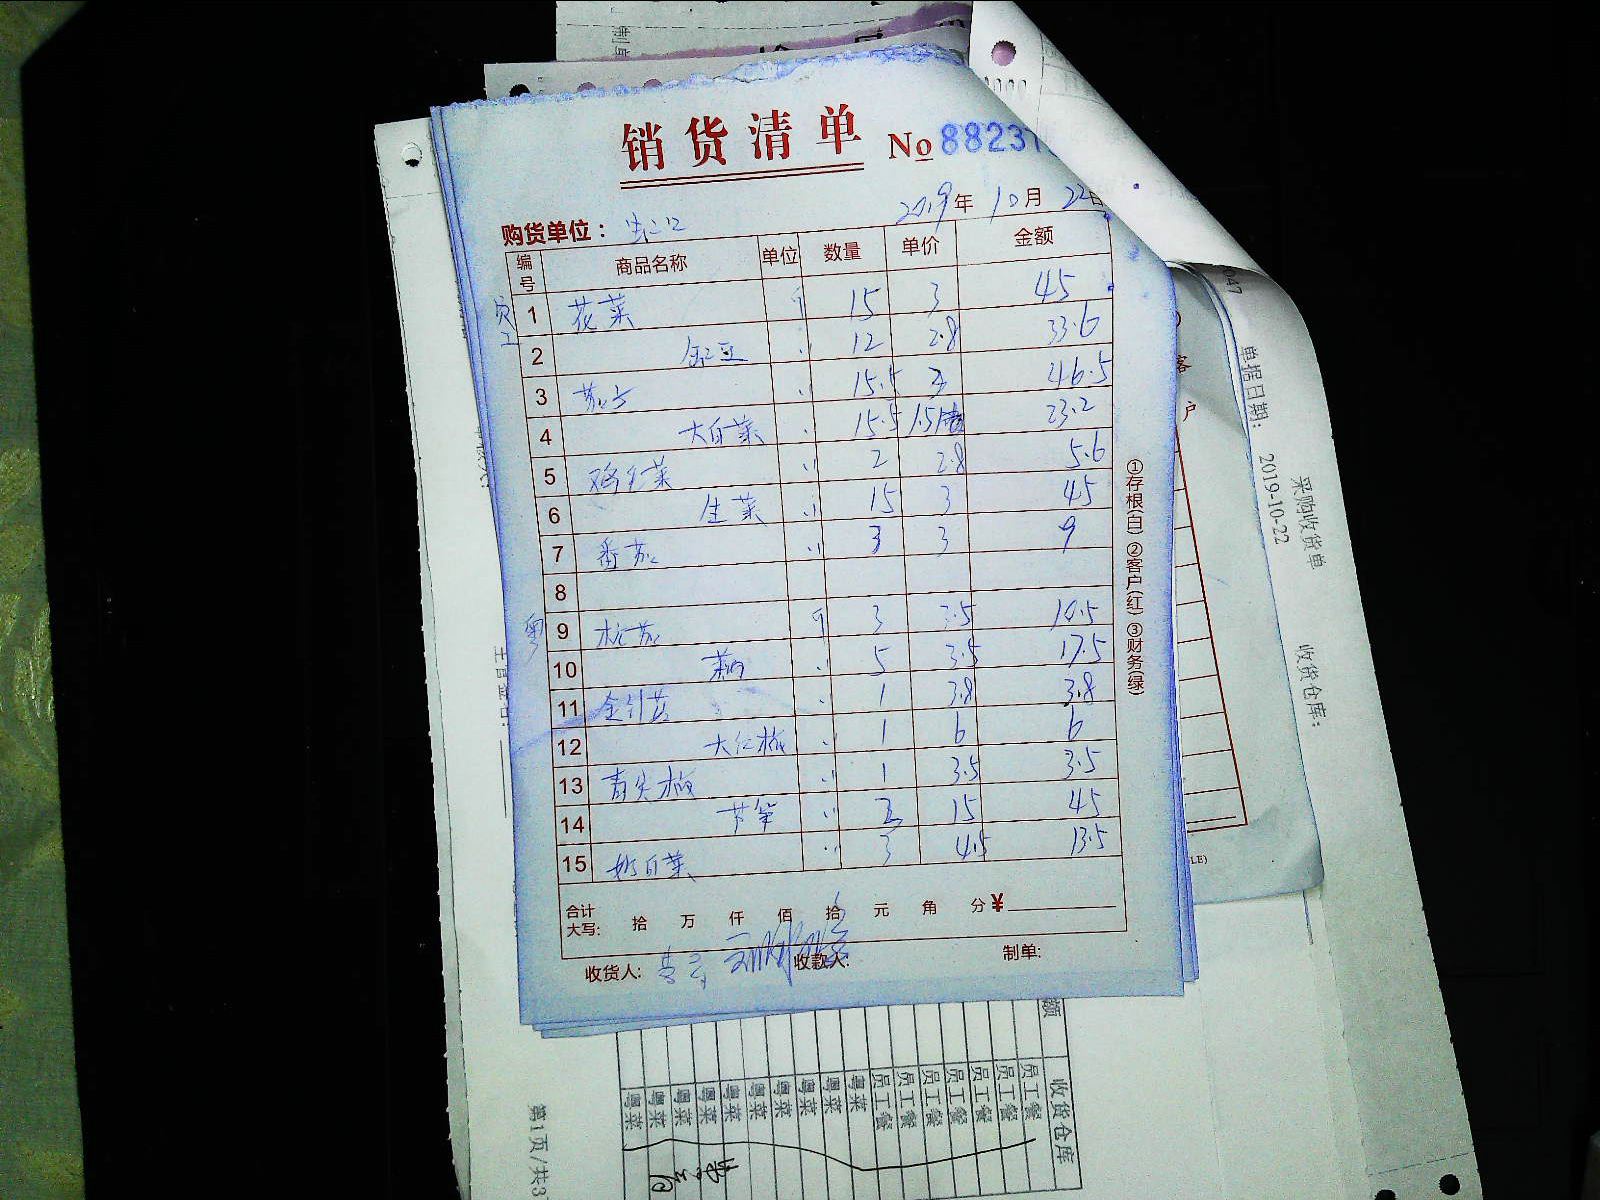 销货清单 No 88237
2019年 10月 22日
购货单位：
编号 商品名称 单位 数量 单价 金额
员工
1 花菜 斤 15 3 45
2 豆 〃 12 2.8 33.6
3 〃 15.5 3 46.5
4 大白菜 〃 15.5 1.5 23.2
5 鸡毛菜 〃 2 2.8 5.6
6 生菜 〃 15 3 45
7 番茄 〃 3 3 9
8
粤
9 杭茄 斤 3 3.5 10.5
10 〃 5 3.5 17.5
11 金针菇 〃 1 3.8 3.8
12 大红椒 〃 1 6 6
13 青尖椒 〃 1 3.5 3.5
14 芦笋 〃 3 15 45
15 奶白菜 〃 3 4.5 13.5
合计大写: 拾 万 仟 佰 拾 元 角 分 ¥
收货人: 收款人: 制单:
①存根(白) ②客户(红) ③财务(绿)
单据日期: 2019-10-22
采购收货单
收货仓库:
客户
额
收货仓库
员工餐
员工餐
员工餐
员工餐
员工餐
员工餐
员工餐
粤菜
粤菜
粤菜
粤菜
粤菜
粤菜
粤菜
粤菜
粤菜
粤菜
第1页/共3